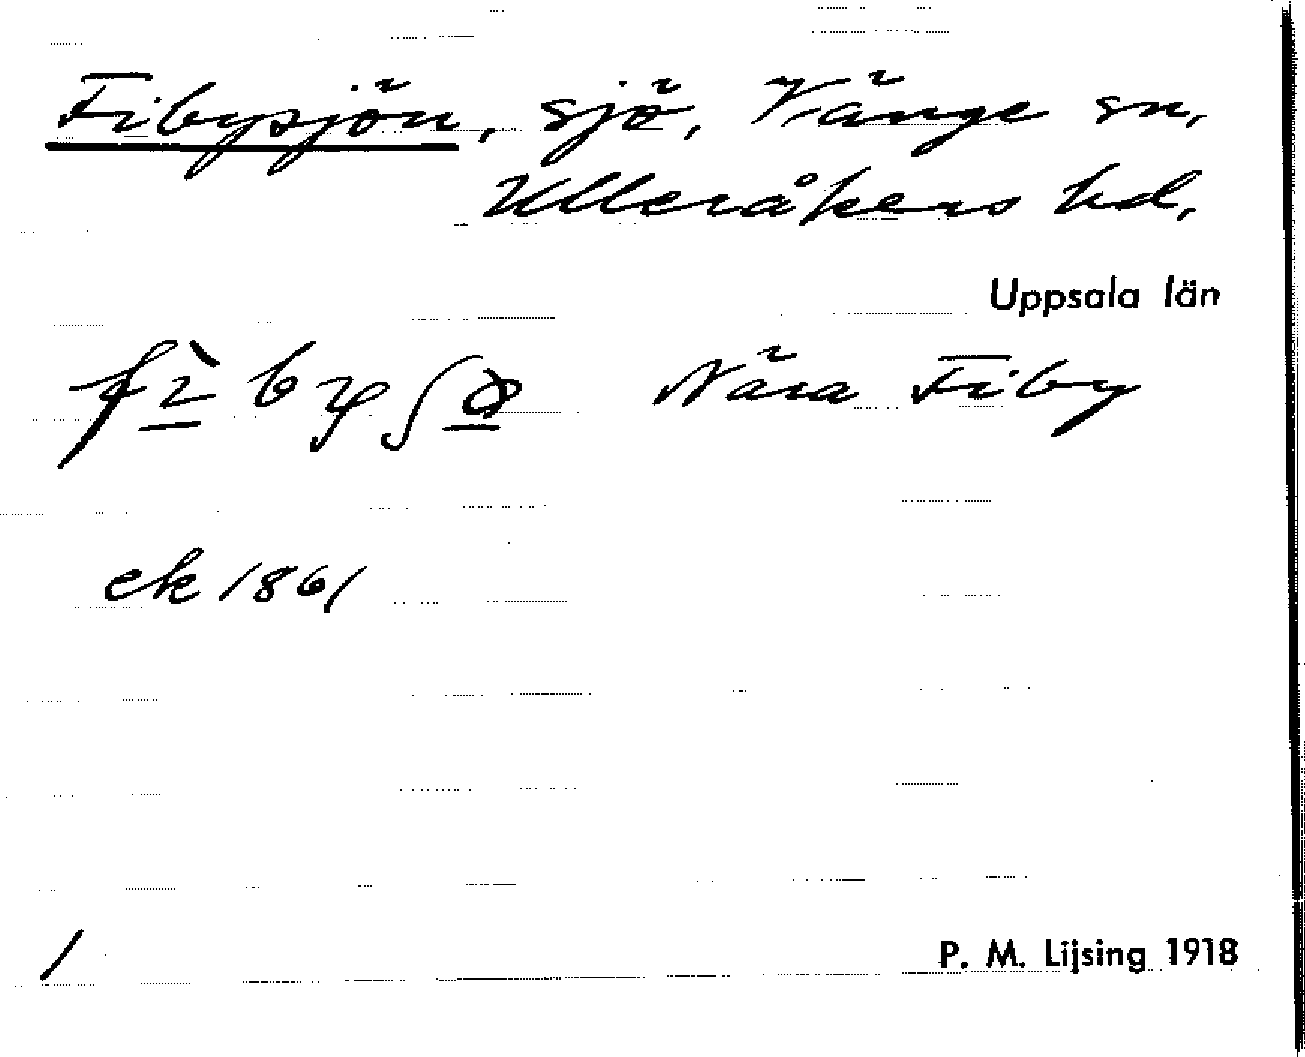 Fibysjön, sjö, Vänge sn,
Ulleråkers hd,
Uppsala län
Nära Fiby
ek 1861
/
P. M. Lijsing 1918